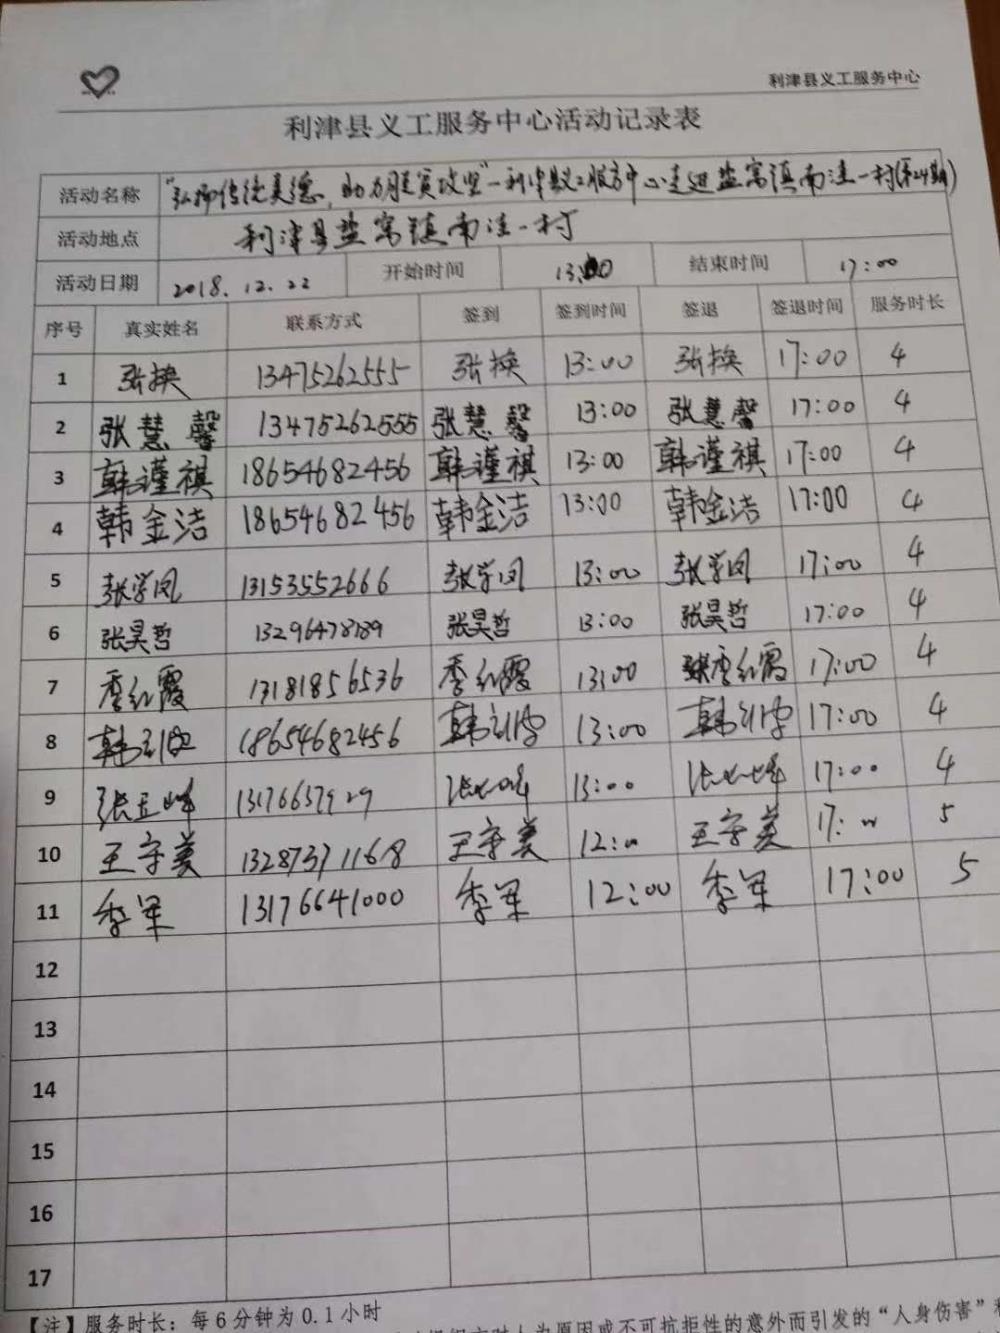 利津县义工服务中心
利津县义工服务中心活动记录表
活动名称 "弘扬传统美德,助力脱贫攻坚"-利津县义工服务中心走进盐窝镇南洼一村(第24期)
活动地点 利津县盐窝镇南洼一村
活动日期 2018.12.22 开始时间 13:00 结束时间 17:00
序号 真实姓名 联系方式 签到 签到时间 签退 签退时间 服务时长
1 张换 13475262555 张换 13:00 张换 17:00 4
2 张慧馨 13475262555 张慧馨 13:00 张慧馨 17:00 4
3 韩谨祺 18654682456 韩谨祺 13:00 韩谨祺 17:00 4
4 韩金洁 18654682456 韩金洁 13:00 韩金洁 17:00 4
5 张学凤 13153552666 张学凤 13:00 张学凤 17:00 4
6 张昊哲 13296478189 张昊哲 13:00 张昊哲 17:00 4
7 季红霞 13181856536 季红霞 13:00 季红霞 17:00 4
8 韩 18654682456 韩 13:00 韩 17:00 4
9 张玉峰 13:00 17:00 4
10 王守美 13287371168 王守美 12:00 王守美 17:00 5
11 季军 13176641000 季军 12:00 季军 17:00 5
12
13
14
15
16
17
【注】服务时长:每6分钟为0.1小时
人为原因或不可抗拒性的意外而引发的"人身伤害"